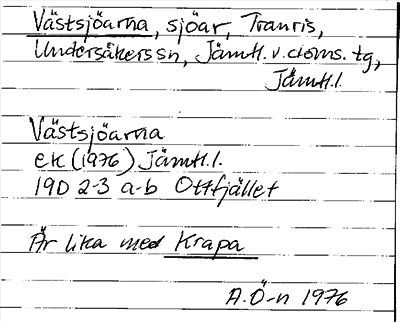 Västsjöarna, sjöar, Tranris,
Undersåkers sn, Jämtl. v. doms. tg,
Jämtl. l.
Västsjöarna
ek (1976) Jämtl. l.
19D 2-3 a-b Ottfjället
Är lika med Krapa
A.Ö-n 1976